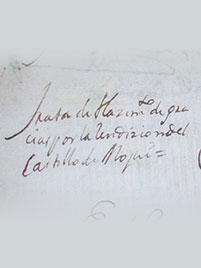 trata de Hazim.to de gra
cias por la Rendizion del
Castillo de Mequi=